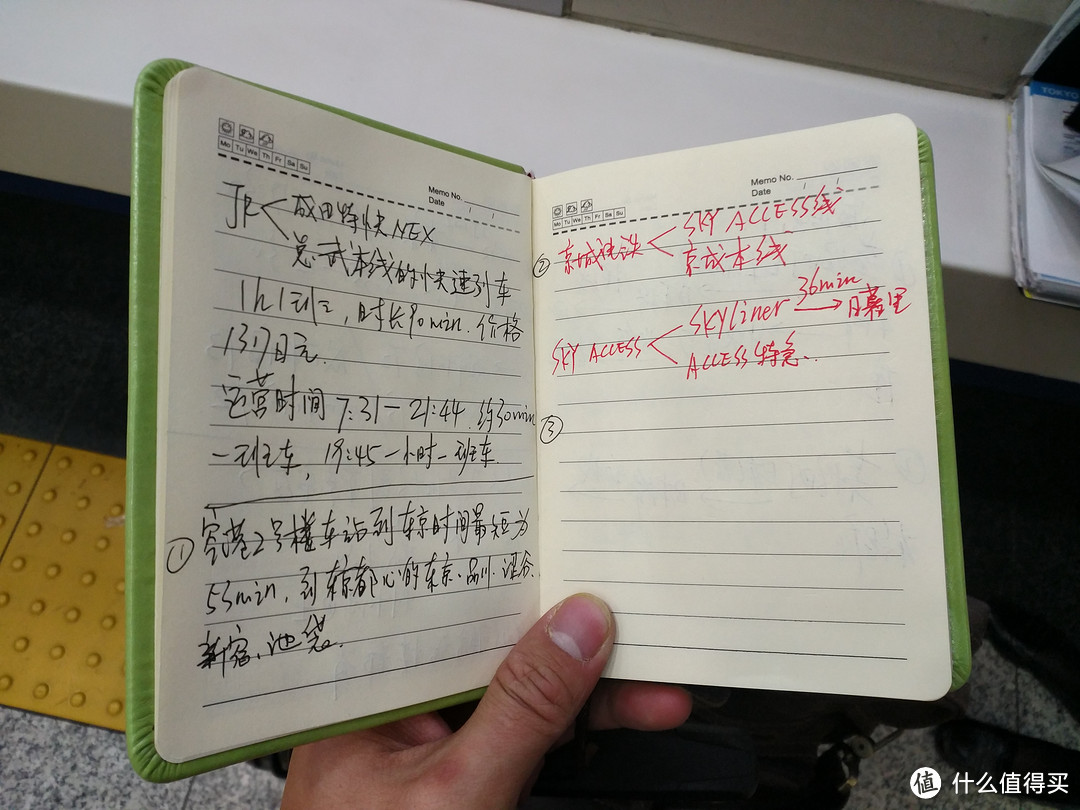 Mo Tu We Th Fr Sa Su
Memo No.
Date / /
JR 成田特快NEX
总武本线的快速列车
1h1班, 时长90min. 价格
1317日元.
运营时间 7:31-21:44. 约30min
一班车, 19:45一小时一班车.
① 机场2号楼车站到东京时间最短为
53min, 到东京都心的东京、品川、涩谷、
新宿、池袋.
Memo No.
Date / /
Mo Tu We Th Fr Sa Su
② 京城铁 SKY ACCESS线
京成本线
SKY ACCESS Skyliner 36min 日暮里
ACCESS特急..
③
TOKYO
值 什么值得买